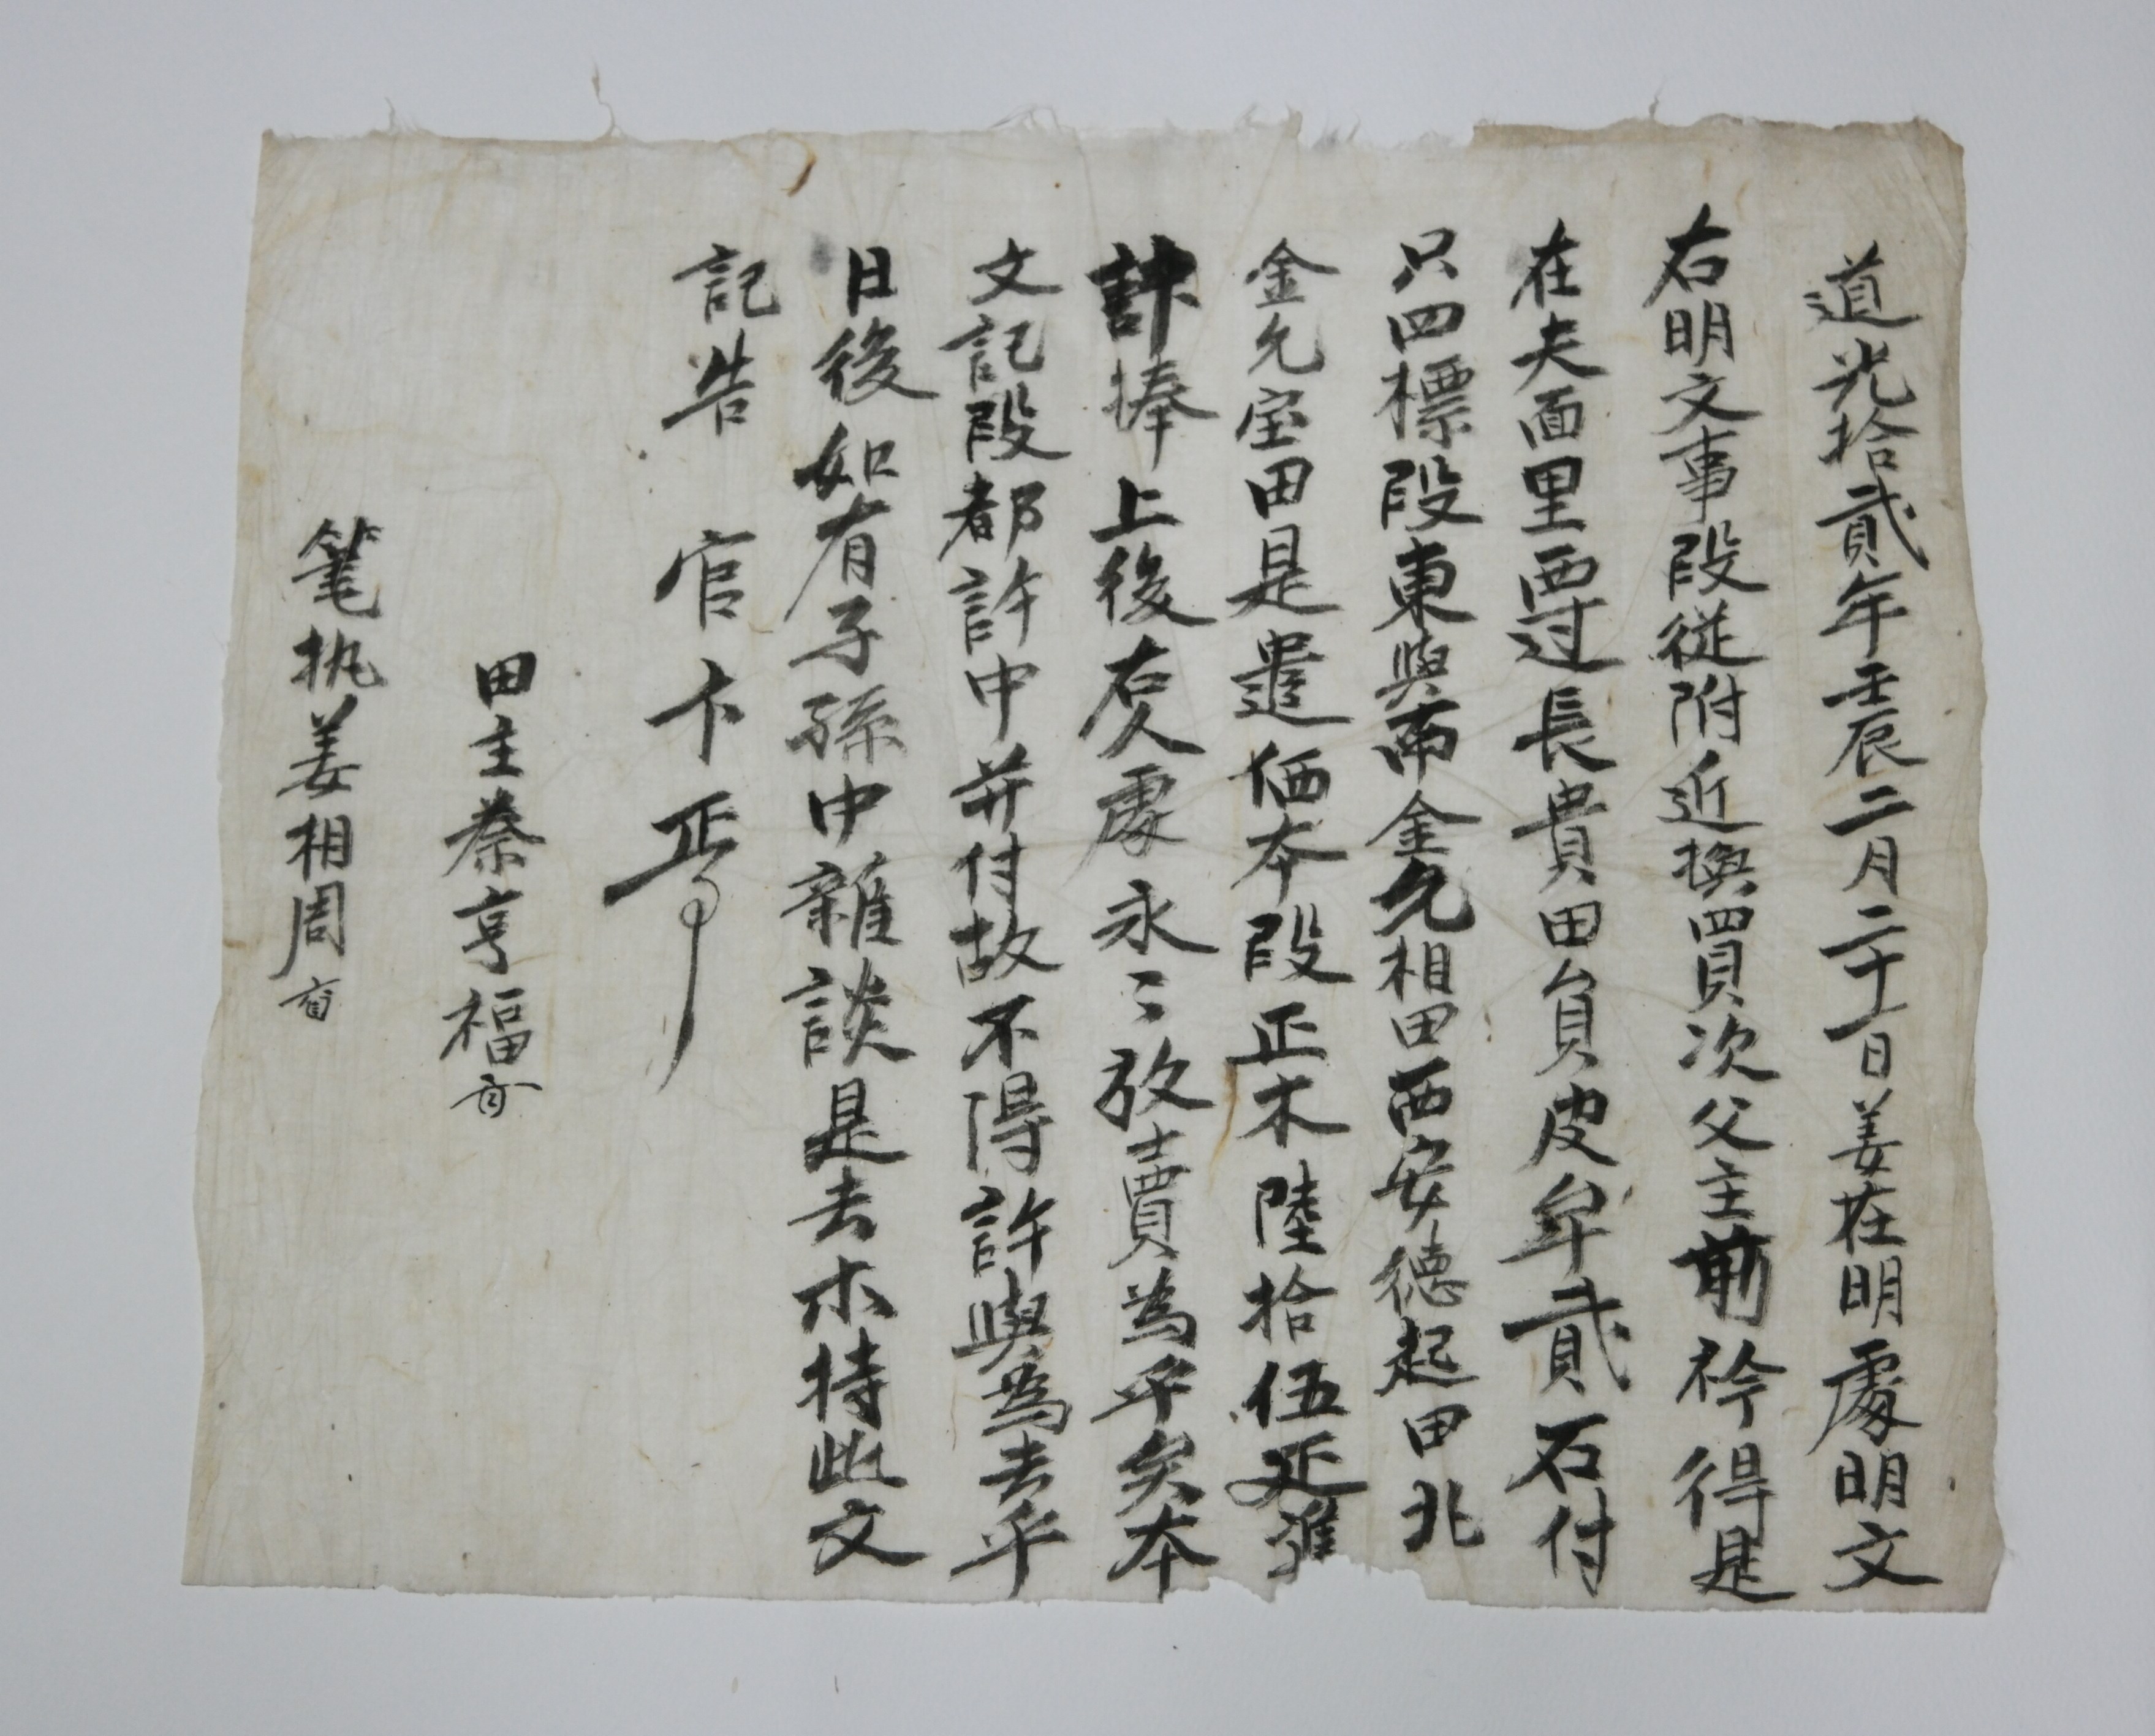 道光拾貳年壬辰二月二十一日姜在明處明文
右明文事段從附近換買次父主前衿得是
在夫面里要过長貴田負皮牟貳石付
只四標段東與南金允相田西安德起田北
金允宝田是遣価本段正木陸拾伍疋準
計捧上後右人處永〻放賣為乎矣本
文記段都許中并付故不得許與為去乎
日後如有子孫中雜談是去木持此文
記告官卞正事
田主秦亨福
筆执姜相周